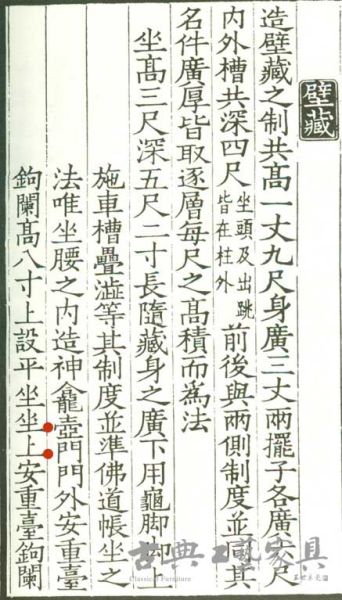 壁藏
造壁藏之制共髙一丈九尺身廣三丈兩擺子各廣六尺
內外槽共深四尺坐頭及出跳皆在柱外前後與兩側制度並同其
名件廣厚皆取逐層每尺之髙積而爲法
坐髙三尺深五尺二寸長隨藏身之廣下用龜脚脚上
施車槽疊澁等其制度並準佛道帳坐之
法唯坐腰之內造神龕壼門門外安重臺
鉤闌髙八寸上設平坐坐上安重臺鉤闌
古典工藝家具
Classical Furniture